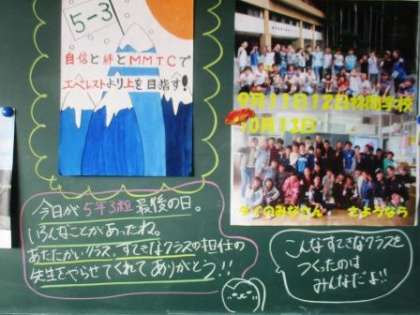 5-3
自信と絆とMMTCで
エベレストより上を目指す!
9月11日12日林間学校
10月13日
さようなら
今日が5年3組最後の日。
いろんなことがあったね。
あたたかいクラス、すてきなクラスの担任の
先生をやらせてくれてありがとう!!
こんなすてきなクラスを
つくったのは
みんなだよ!!